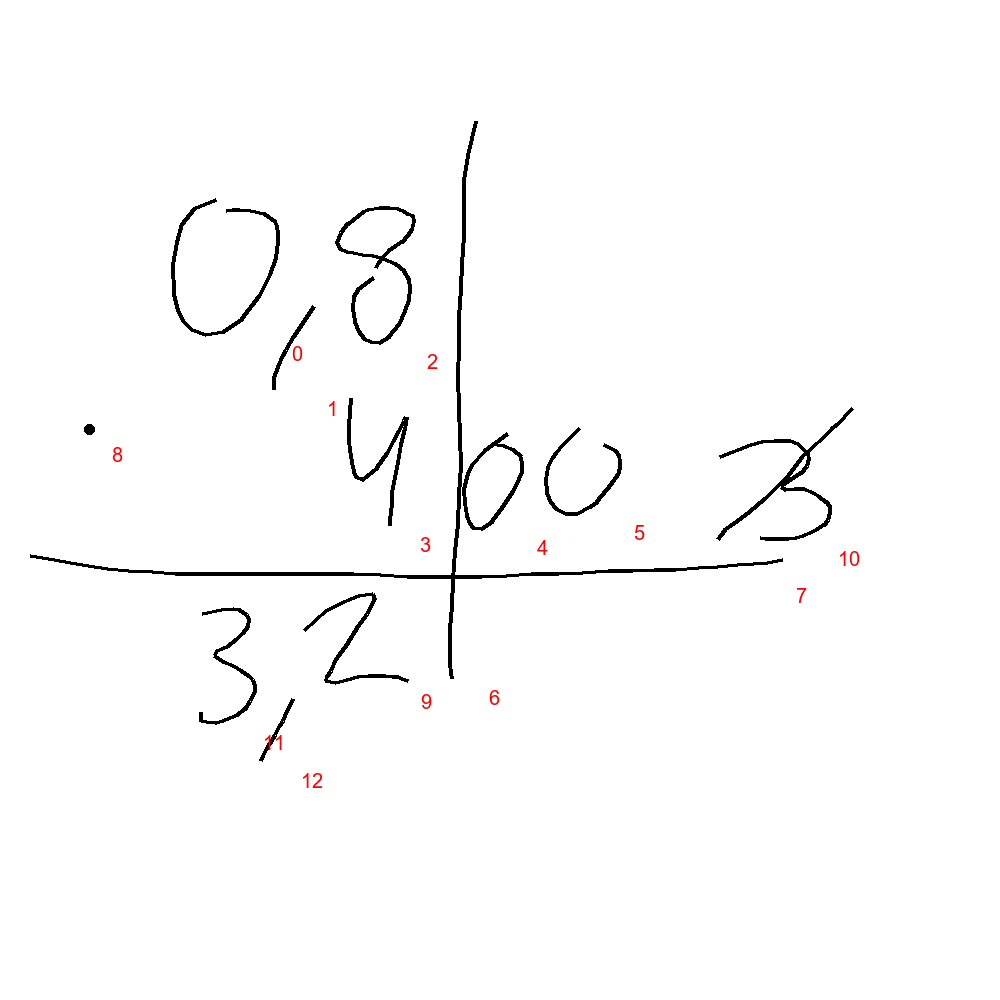 0,8
0 2
1
· 400 3
8
3 4 5 10
7
3,2
9 6
11
12